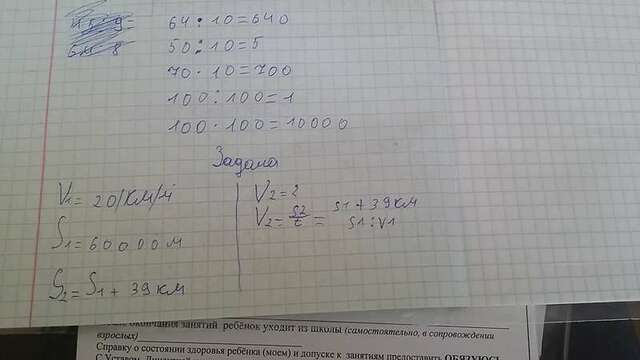 64 : 10 = 640
50 : 10 = 5
70 · 10 = 700
100 : 100 = 1
100 · 100 = 10000
Задача
V1 = 20 км/ч
S1 = 60000 м
S2 = S1 + 39 км
V2 = ?
V2 = S2/t = S1 + 39 км
S1 : V1
занятий ребёнок уходит из школы (самостоятельно, в сопровождении
взрослых)
Справку о состоянии здоровья ребёнка (моем) и допуске к занятиям предоставить ОБЯЗУЮСЬ